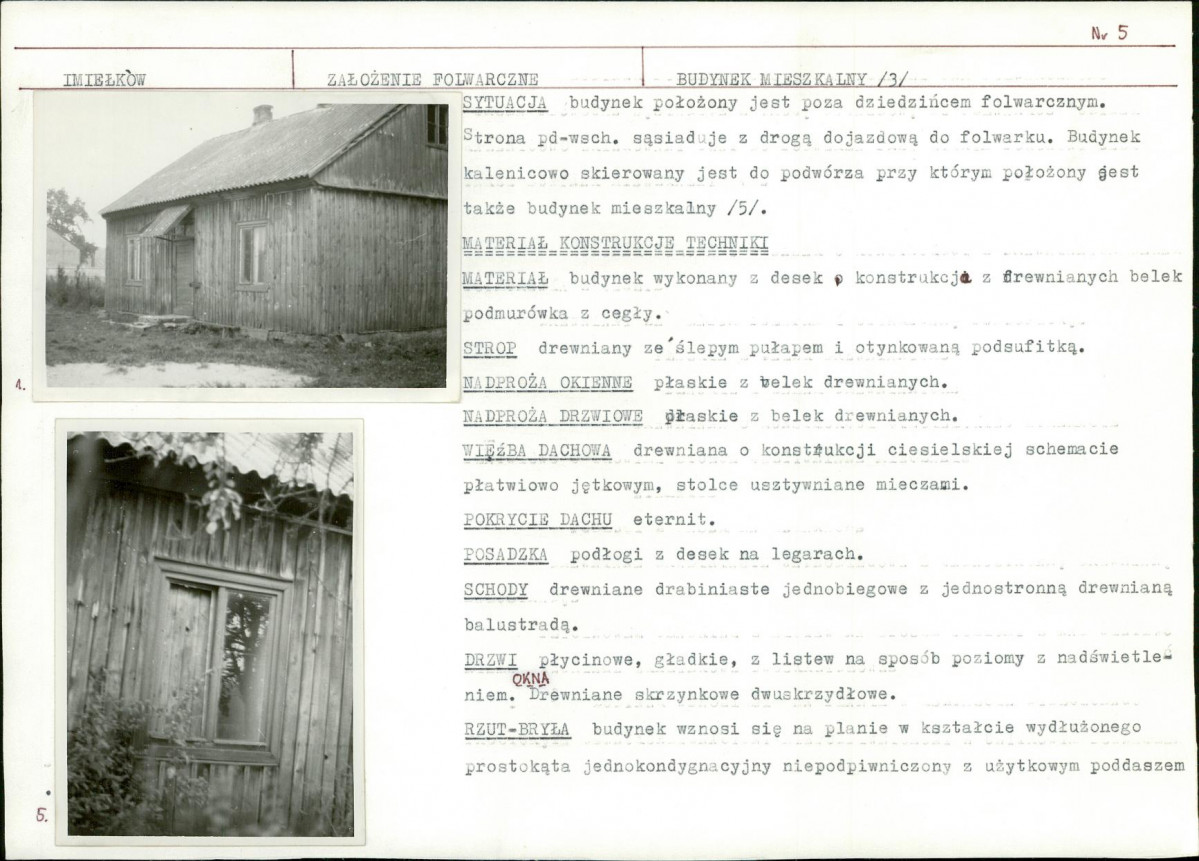 Nr 5
IMIEŁKÓW ZAŁOŻENIE FOLWARCZNE BUDYNEK MIESZKALNY /3/
SYTUACJA budynek położony jest poza dziedzińcem folwarcznym.
Strona pd-wsch. sąsiaduje z drogą dojazdową do folwarku. Budynek
kalenicowo skierowany jest do podwórza przy którym położony jest
także budynek mieszkalny /5/.
MATERIAŁ KONSTRUKCJE TECHNIKI
MATERIAŁ budynek wykonany z desek o konstrukcji z drewnianych belek
podmurówka z cegły.
STROP drewniany ze ślepym pułapem i otynkowaną podsufitką.
NADPROŻA OKIENNE płaskie z belek drewnianych.
NADPROŻA DRZWIOWE płaskie z belek drewnianych.
WIĘŹBA DACHOWA drewniana o konstrukcji ciesielskiej schemacie
płatwiowo jętkowym, stolce usztywniane mieczami.
POKRYCIE DACHU eternit.
POSADZKA podłogi z desek na legarach.
SCHODY drewniane drabiniaste jednobiegowe z jednostronną drewnianą
balustradą.
DRZWI płycinowe, gładkie, z listew na sposób poziomy z nadświetle-
niem. OKNA Drewniane skrzynkowe dwuskrzydłowe.
RZUT-BRYŁA budynek wznosi się na planie w kształcie wydłużonego
prostokąta jednokondygnacyjny niepodpiwniczony z użytkowym poddaszem
1.
5.